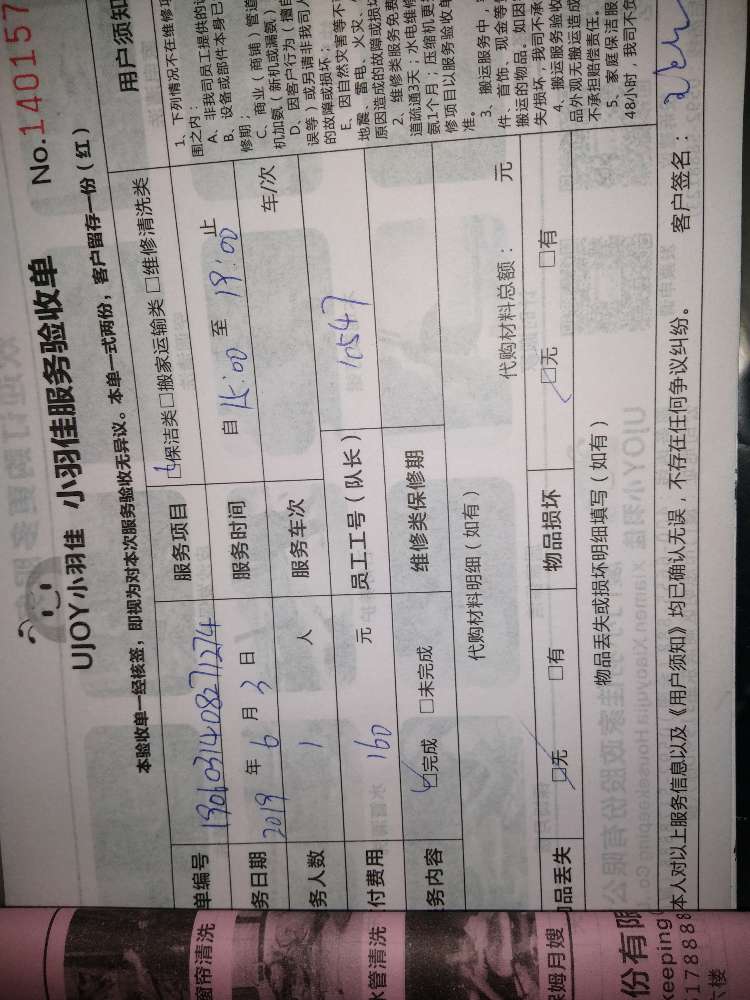 UJOY小羽佳 小羽佳服务验收单 No.140157
本验收单一经核签，即视为对本次服务验收无异议。本单一式两份，客户留存一份（红）
单编号 1906031408271274 服务项目 □保洁类□搬家运输类 □维修清洗类
务日期 2019 年 6 月 3 日 服务时间 自 15:00 至 19:00 止
务人数 1 人 服务车次 车/次
付费用 160 元 员工工号（队长） 10547
务内容 □完成 □未完成 维修类保修期
代购材料明细（如有） 代购材料总额： 元
品丢失 □无 □有 物品损坏 □无 □有
物品丢失或损坏明细填写（如有）
本人对以上服务信息以及《用户须知》均已确认无误，不存在任何争议纠纷。 客户签名：
用户须知
1、下列情况不在维修
围之内：
A、非我司员工提供的
B、设备或部件本身已
修期；
C、商业（商铺）管道
机加氨（新机或漏氨）
D、因客户行为（擅自
误等）或另请非我司人
的故障或损坏；
E、因自然灾害等不
地震、雷电、火灾、
原因造成的故障或损坏
2、维修类服务免费
道疏通3天；水电维修
氨1个月；压缩机更
修项目以服务验收单
准。
3、搬运服务中，
件、首饰、现金等
搬运的物品。如因
失损坏，我司不承
4、搬运服务验收
品外观无搬运造成
不承担赔偿责任。
5、家庭保洁服
48小时，我司不负
窗帘清洗
水管清洗
保姆月嫂
份有限
keeping
178888
楼